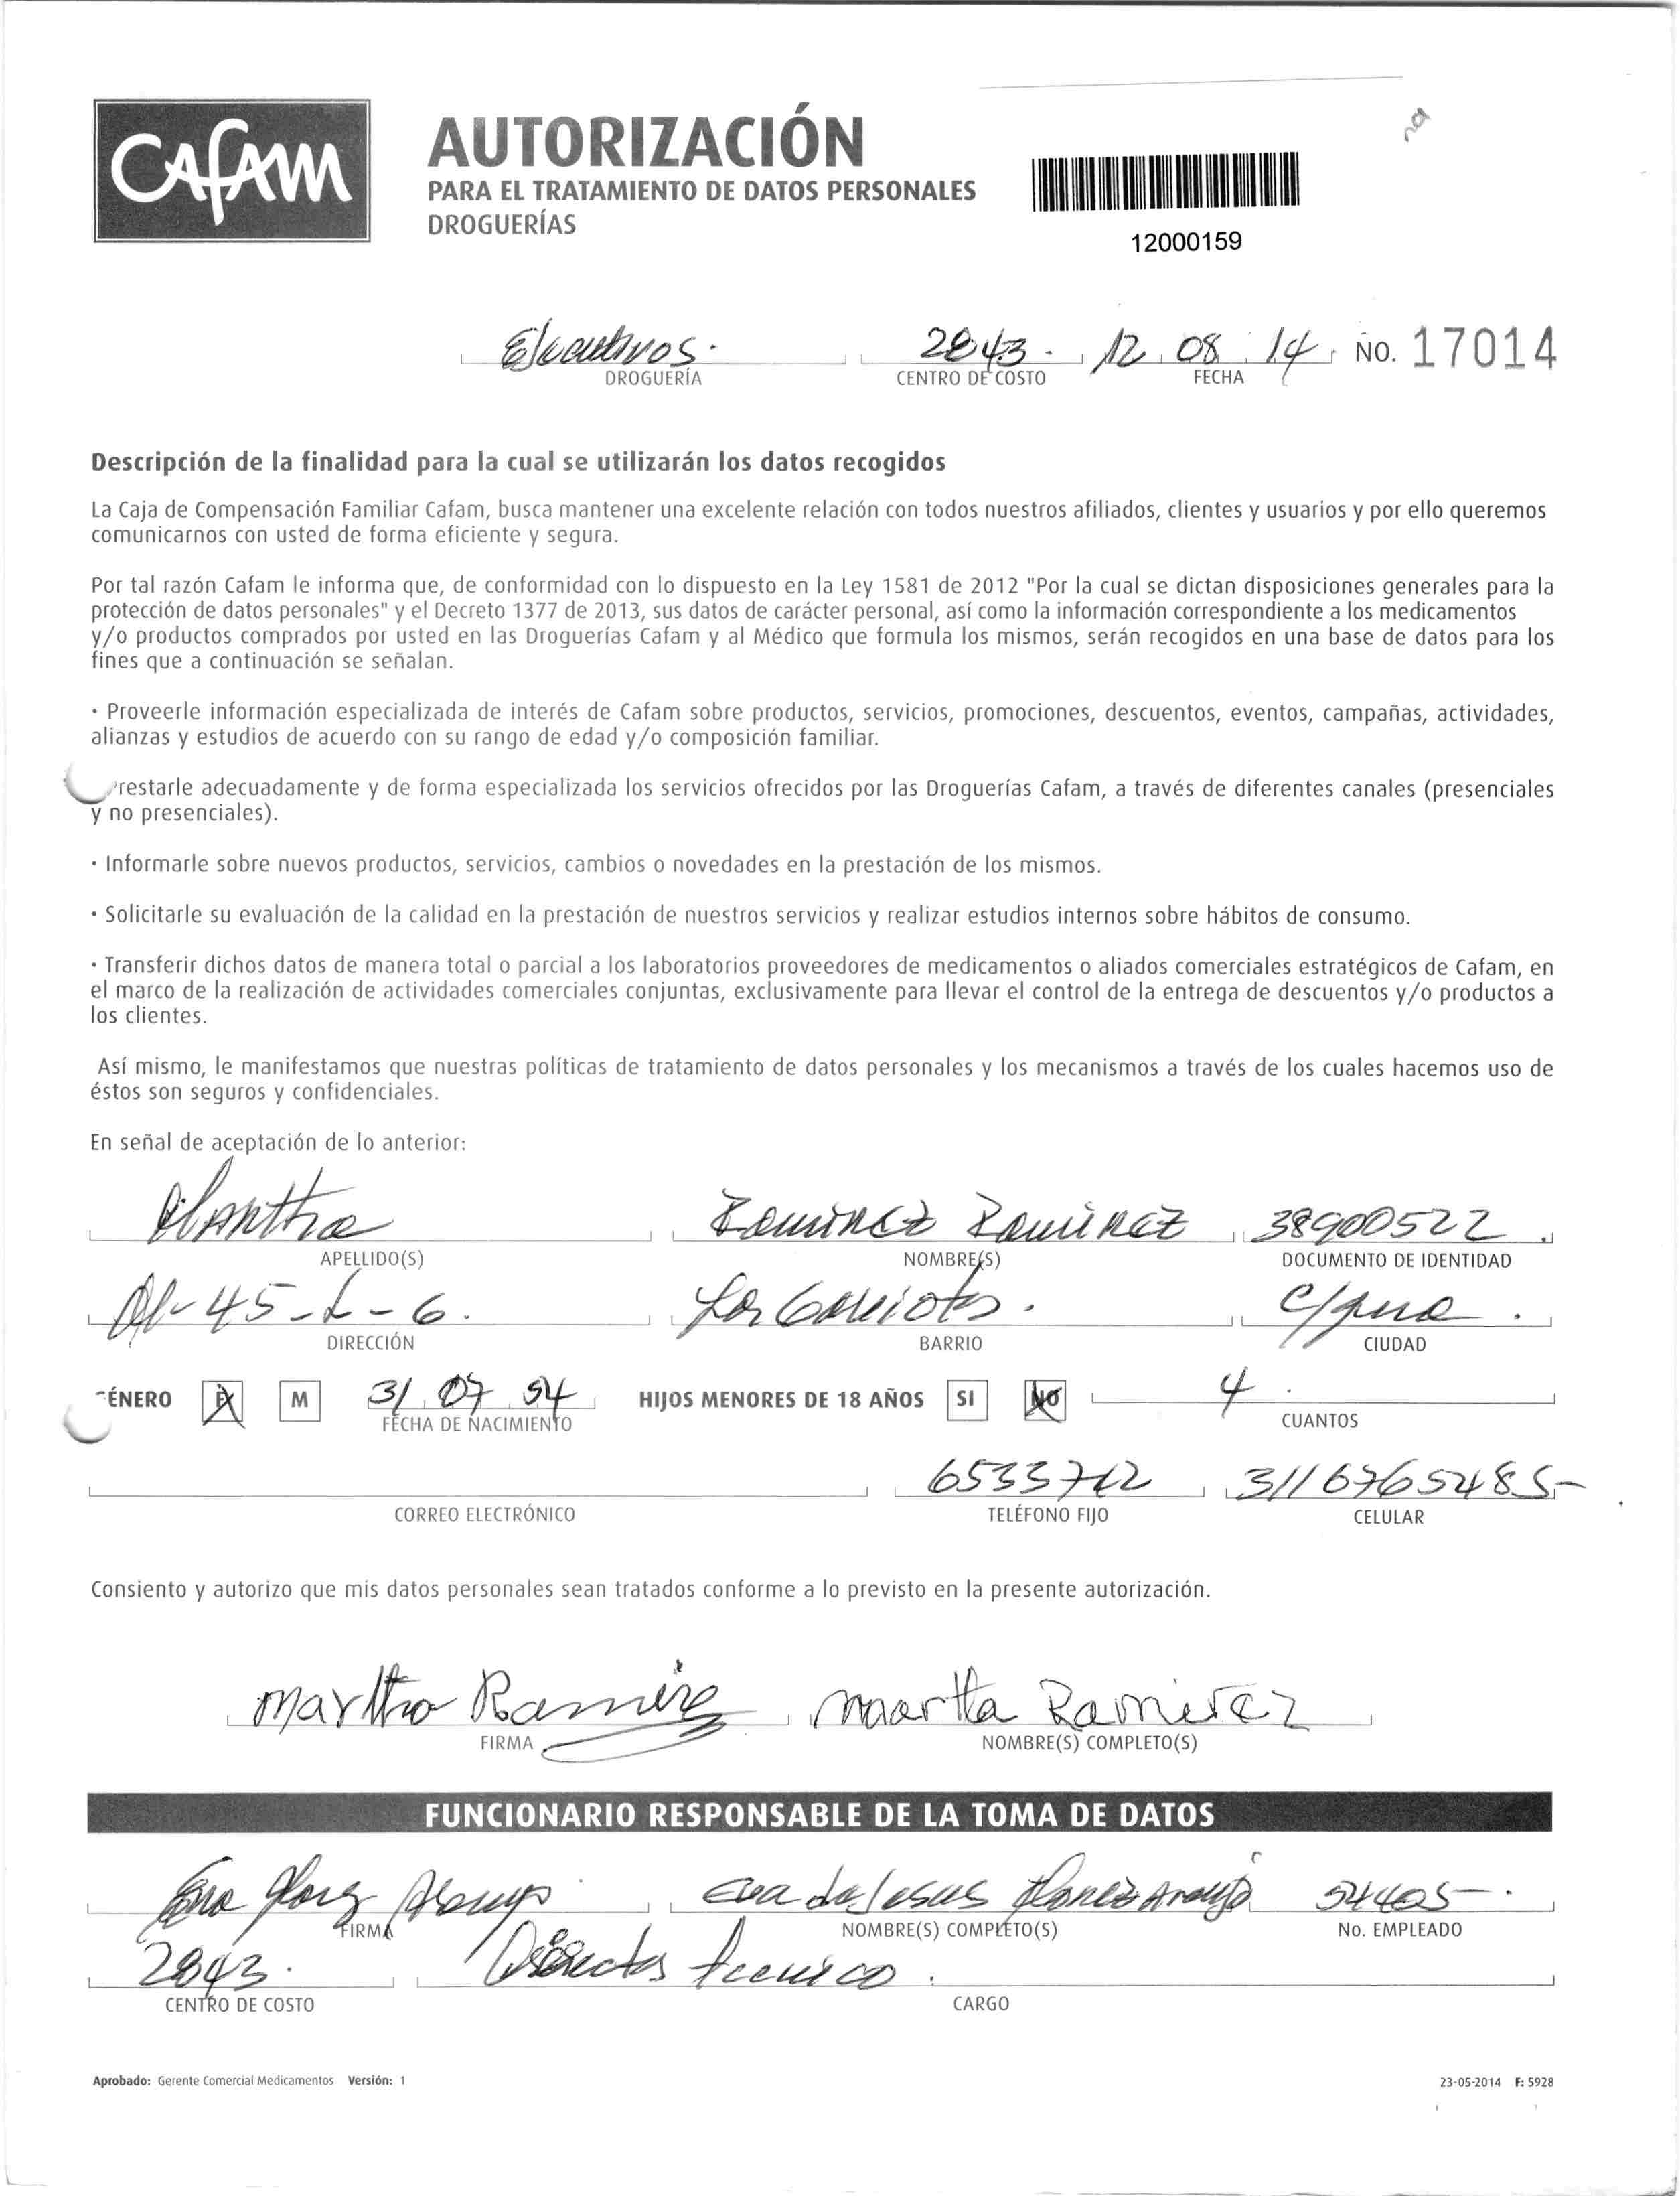 CAFAM
AUTORIZACIÓN
PARA EL TRATAMIENTO DE DATOS PERSONALES
DROGUERÍAS
12000159
Ejecutivos. 2843. 12 08 14 NO. 17014
DROGUERÍA CENTRO DE COSTO FECHA
Descripción de la finalidad para la cual se utilizarán los datos recogidos
La Caja de Compensación Familiar Cafam, busca mantener una excelente relación con todos nuestros afiliados, clientes y usuarios y por ello queremos
comunicarnos con usted de forma eficiente y segura.
Por tal razón Cafam le informa que, de conformidad con lo dispuesto en la Ley 1581 de 2012 "Por la cual se dictan disposiciones generales para la
protección de datos personales" y el Decreto 1377 de 2013, sus datos de carácter personal, así como la información correspondiente a los medicamentos
y/o productos comprados por usted en las Droguerías Cafam y al Médico que formula los mismos, serán recogidos en una base de datos para los
fines que a continuación se señalan.
· Proveerle información especializada de interés de Cafam sobre productos, servicios, promociones, descuentos, eventos, campañas, actividades,
alianzas y estudios de acuerdo con su rango de edad y/o composición familiar.
restarle adecuadamente y de forma especializada los servicios ofrecidos por las Droguerías Cafam, a través de diferentes canales (presenciales
y no presenciales).
· Informarle sobre nuevos productos, servicios, cambios o novedades en la prestación de los mismos.
· Solicitarle su evaluación de la calidad en la prestación de nuestros servicios y realizar estudios internos sobre hábitos de consumo.
· Transferir dichos datos de manera total o parcial a los laboratorios proveedores de medicamentos o aliados comerciales estratégicos de Cafam, en
el marco de la realización de actividades comerciales conjuntas, exclusivamente para llevar el control de la entrega de descuentos y/o productos a
los clientes.
Así mismo, le manifestamos que nuestras políticas de tratamiento de datos personales y los mecanismos a través de los cuales hacemos uso de
éstos son seguros y confidenciales.
En señal de aceptación de lo anterior:
Martha Ramirez Ramirez 38900522.
APELLIDO(S) NOMBRE(S) DOCUMENTO DE IDENTIDAD
45-L-6. Los Gaviotas. C/gena.
DIRECCIÓN BARRIO CIUDAD
ÉNERO F M 31 07 54 HIJOS MENORES DE 18 AÑOS SI NO 4.
FECHA DE NACIMIENTO CUANTOS
6533712 3116765485-
CORREO ELECTRÓNICO TELÉFONO FIJO CELULAR
Consiento y autorizo que mis datos personales sean tratados conforme a lo previsto en la presente autorización.
Martha Ramirez Martha Ramirez
FIRMA NOMBRE(S) COMPLETO(S)
FUNCIONARIO RESPONSABLE DE LA TOMA DE DATOS
Eva Florez Araujo. Eva de Jesus Florez Araujo 54405-.
FIRMA NOMBRE(S) COMPLETO(S) No. EMPLEADO
2843. Director tecnico.
CENTRO DE COSTO CARGO
Aprobado: Gerente Comercial Medicamentos Versión: 1 23-05-2014 F: 5928